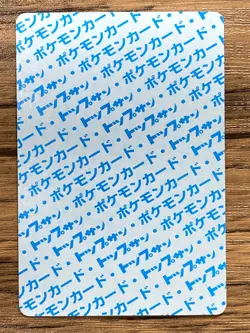 ポケモンカード・
トップサン・ポケモンカード・
ポケモンカード・トップサン・
トップサン・ポケモンカード・
ポケモンカード・トップサン・
トップサン・ポケモンカード・
ポケモンカード・トップサン・
トップサン・ポケモンカード・
ポケモンカード・トップサン・
トップサン・ポケモンカード・
ポケモンカード・トップサン・
トップサン・ポケモンカード・
ポケモンカード・